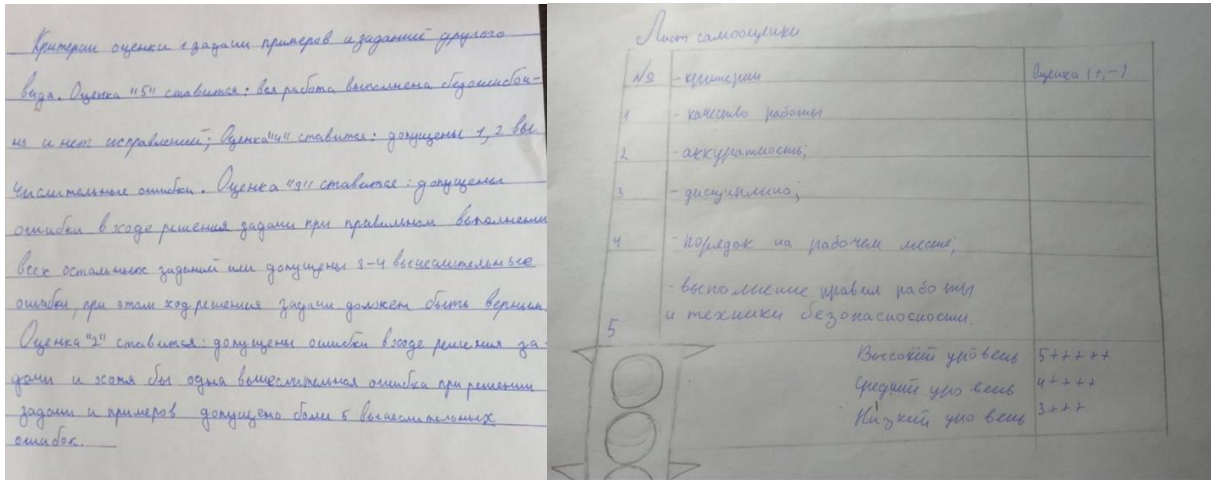 Критерии оценки 1 задачи примеров и заданий другого
вида. Оценка "5" ставится: вся работа выполнена безошибоч-
но и нет исправлений; Оценка "4" ставится: допущены 1, 2 вы-
числительные ошибки. Оценка "3" ставится: допущены
ошибки в ходе решения задачи при правильном выполнении
всех остальных заданий или допущены 3-4 вычислительные
ошибки, при этом ход решения задачи должен быть верным.
Оценка "2" ставится: допущены ошибки в ходе решения за-
дачи и хотя бы одна вычислительная ошибка при решении
задачи и примеров допущено более 5 вычислительных
ошибок.
Лист самооценки
№ - критерии Оценка (+,-)
1 - качество работы
2 - аккуратность;
3 - дисциплина;
4 - порядок на рабочем месте;
- выполнение правил работы
и техники безопасносности.
5
Высокий уровень 5+++++
Средний уровень 4++++
Низкий уровень 3+++